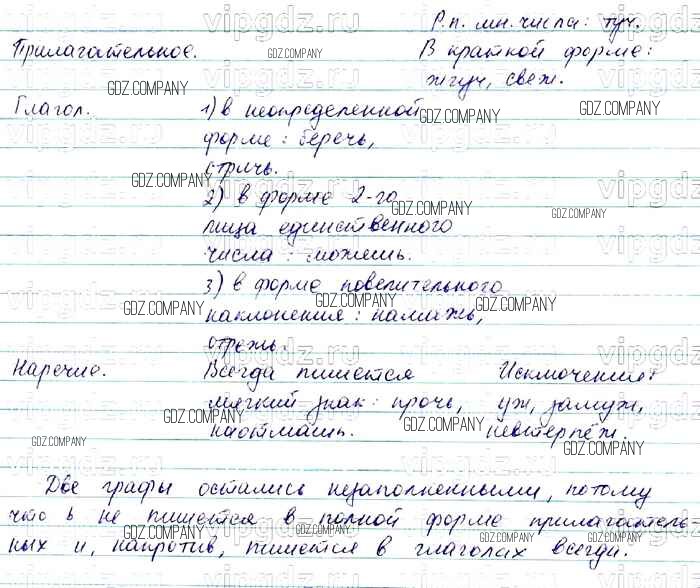 Р.п. мн. числа: туч.
Прилагательное. В краткой форме:
жгуч, свеж.
Глагол. 1) в неопределенной
форме: беречь,
стричь.
2) в форме 2-го
лица единственного
числа: можешь.
3) в форме повелительного
наклонения: намажь,
отрежь.
Наречие. Всегда пишется Исключения:
мягкий знак: прочь, уж, замуж,
наотмашь. невтерпёж.
Две графы остались незаполненными, потому
что ь не пишется в полной форме прилагатель
ных и, напротив, пишется в глаголах всегда.
vipgdz.ru
GDZ.COMPANY